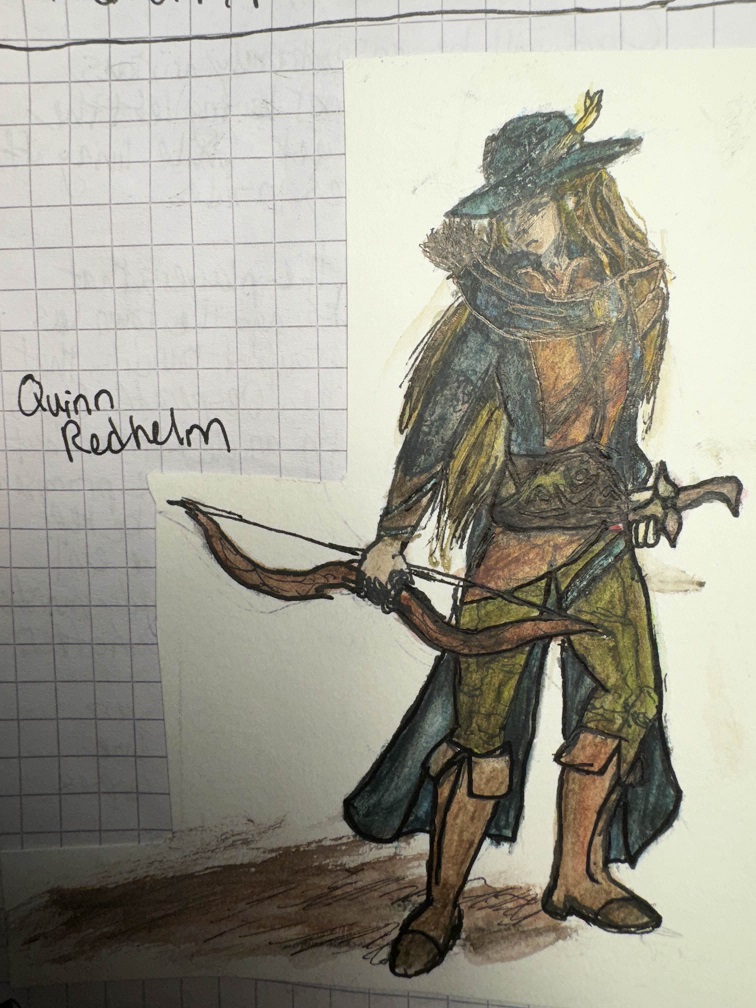 Quinn
Redhelm